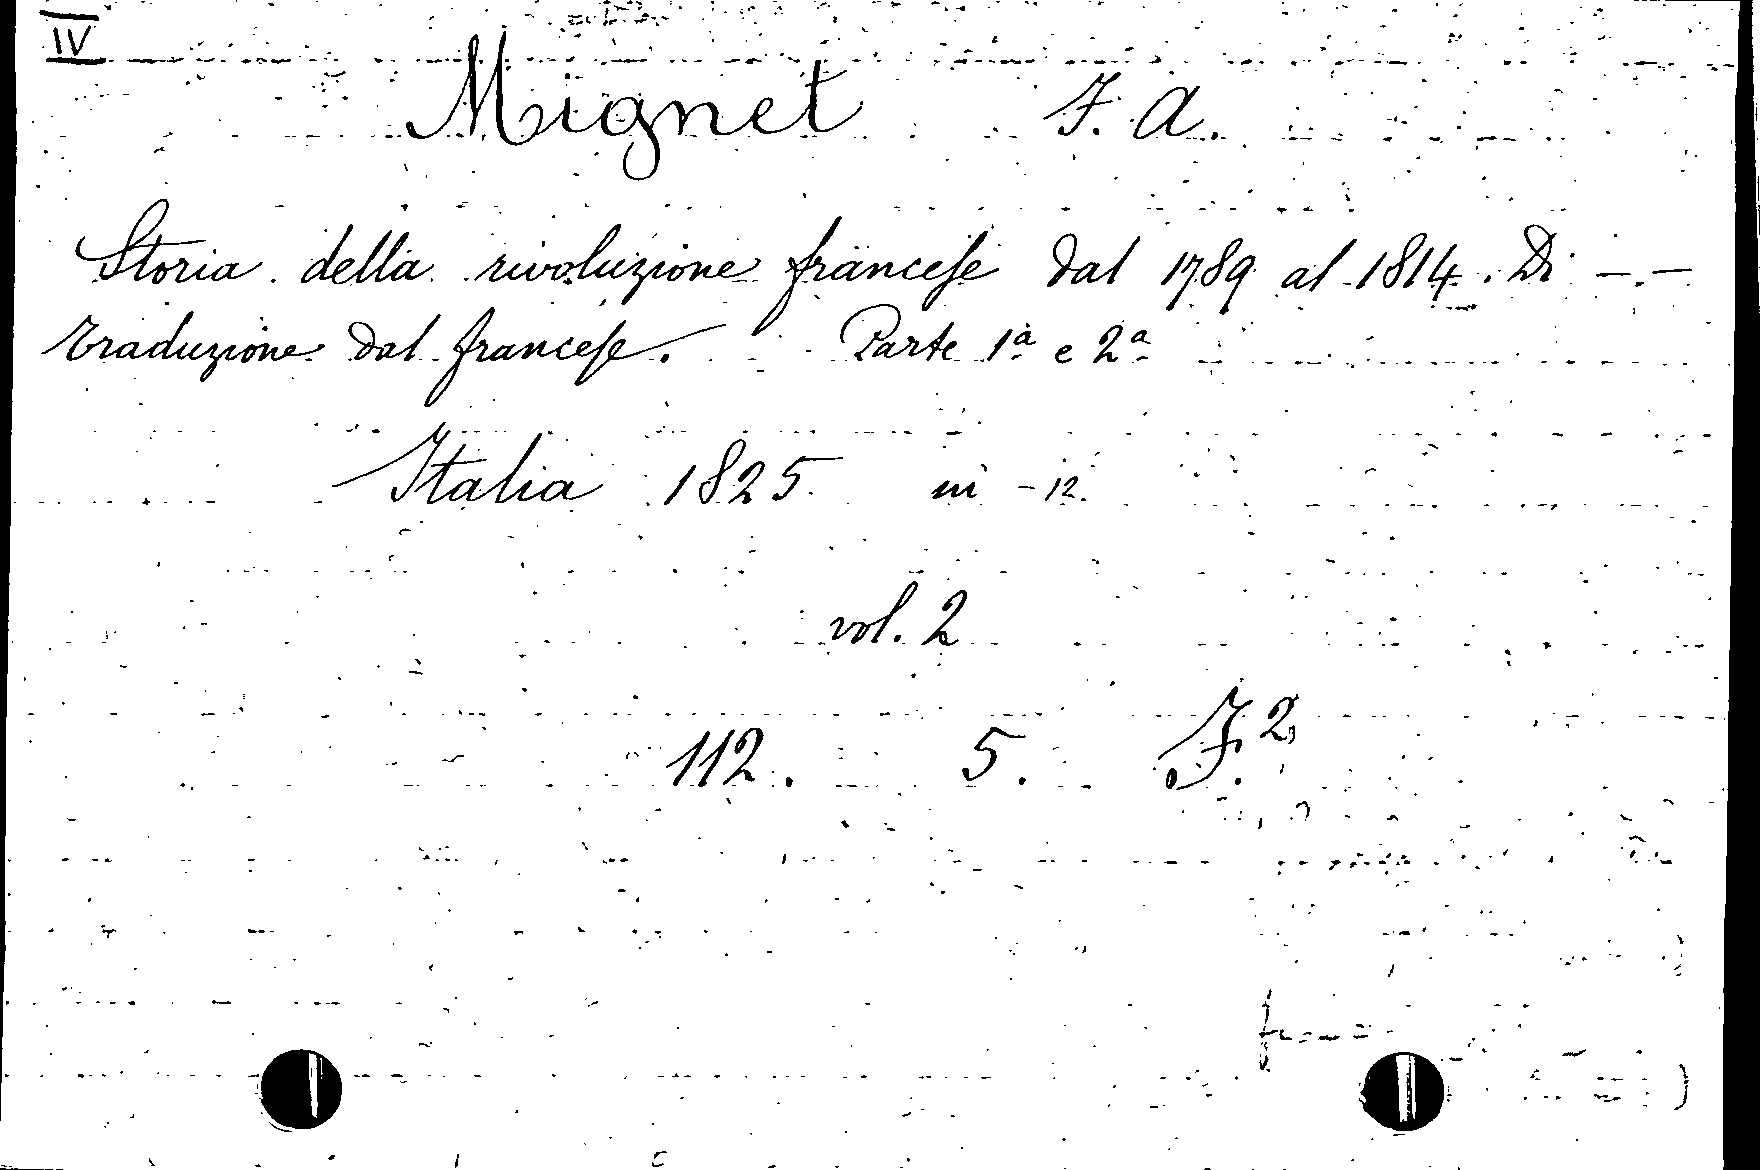 IV
Mignet F. A.
Storia della rivoluzione francese dal 1789 al 1814. Di —.—
traduzione dal francese. Parte 1ª e 2ª
Italia 1825 in -12.
vol. 2
112. 5. F.2